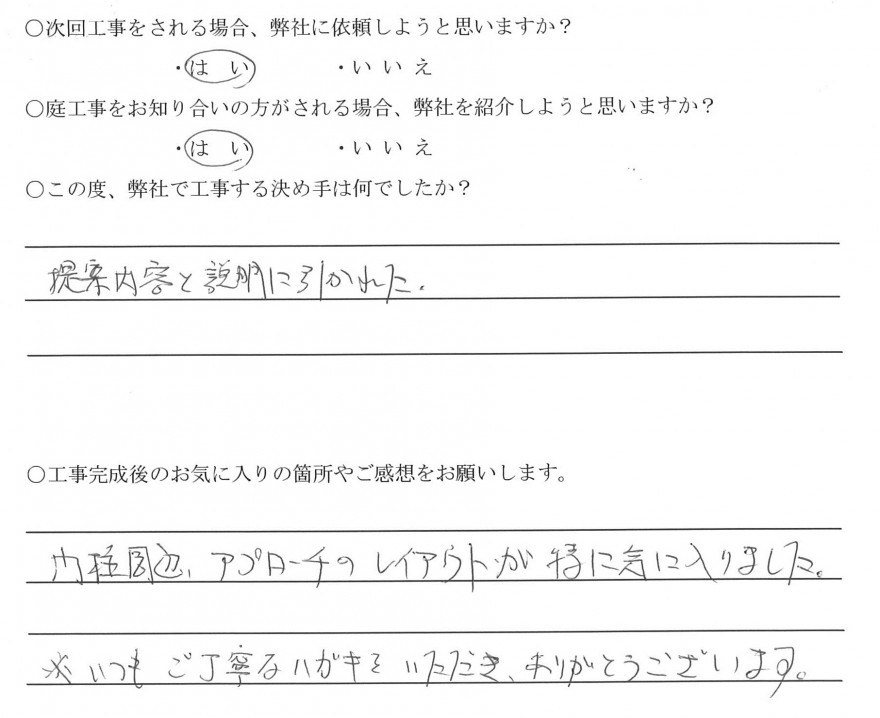 ○次回工事をされる場合、弊社に依頼しようと思いますか？
・はい ・いいえ
○庭工事をお知り合いの方がされる場合、弊社を紹介しようと思いますか？
・はい ・いいえ
○この度、弊社で工事する決め手は何でしたか？
提案内容と説明に引かれた。
○工事完成後のお気に入りの箇所やご感想をお願いします。
周辺、アプローチのレイアウトが特に気に入りました。
※いつもご丁寧なハガキをいただき、ありがとうございます。